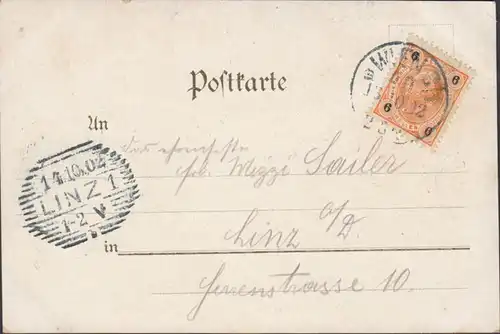 Postkarte
6 6
6 6
WIEN
An
frl. Mizzi Sailer
14.10.02
LINZ 1
1-2 V
Linz a/D.
in
Herrenstrasse 10.